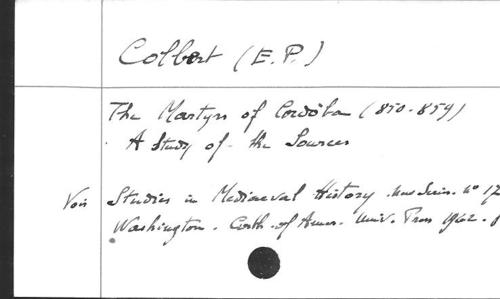 Colbert (E.P.)
The Martyrs of Cordóba (850-859)
A Study of the Sources
Voir Studies in Mediaeval History. New Series. n° 17
Washington. Cath. of Amer. Univ. Press 1962.